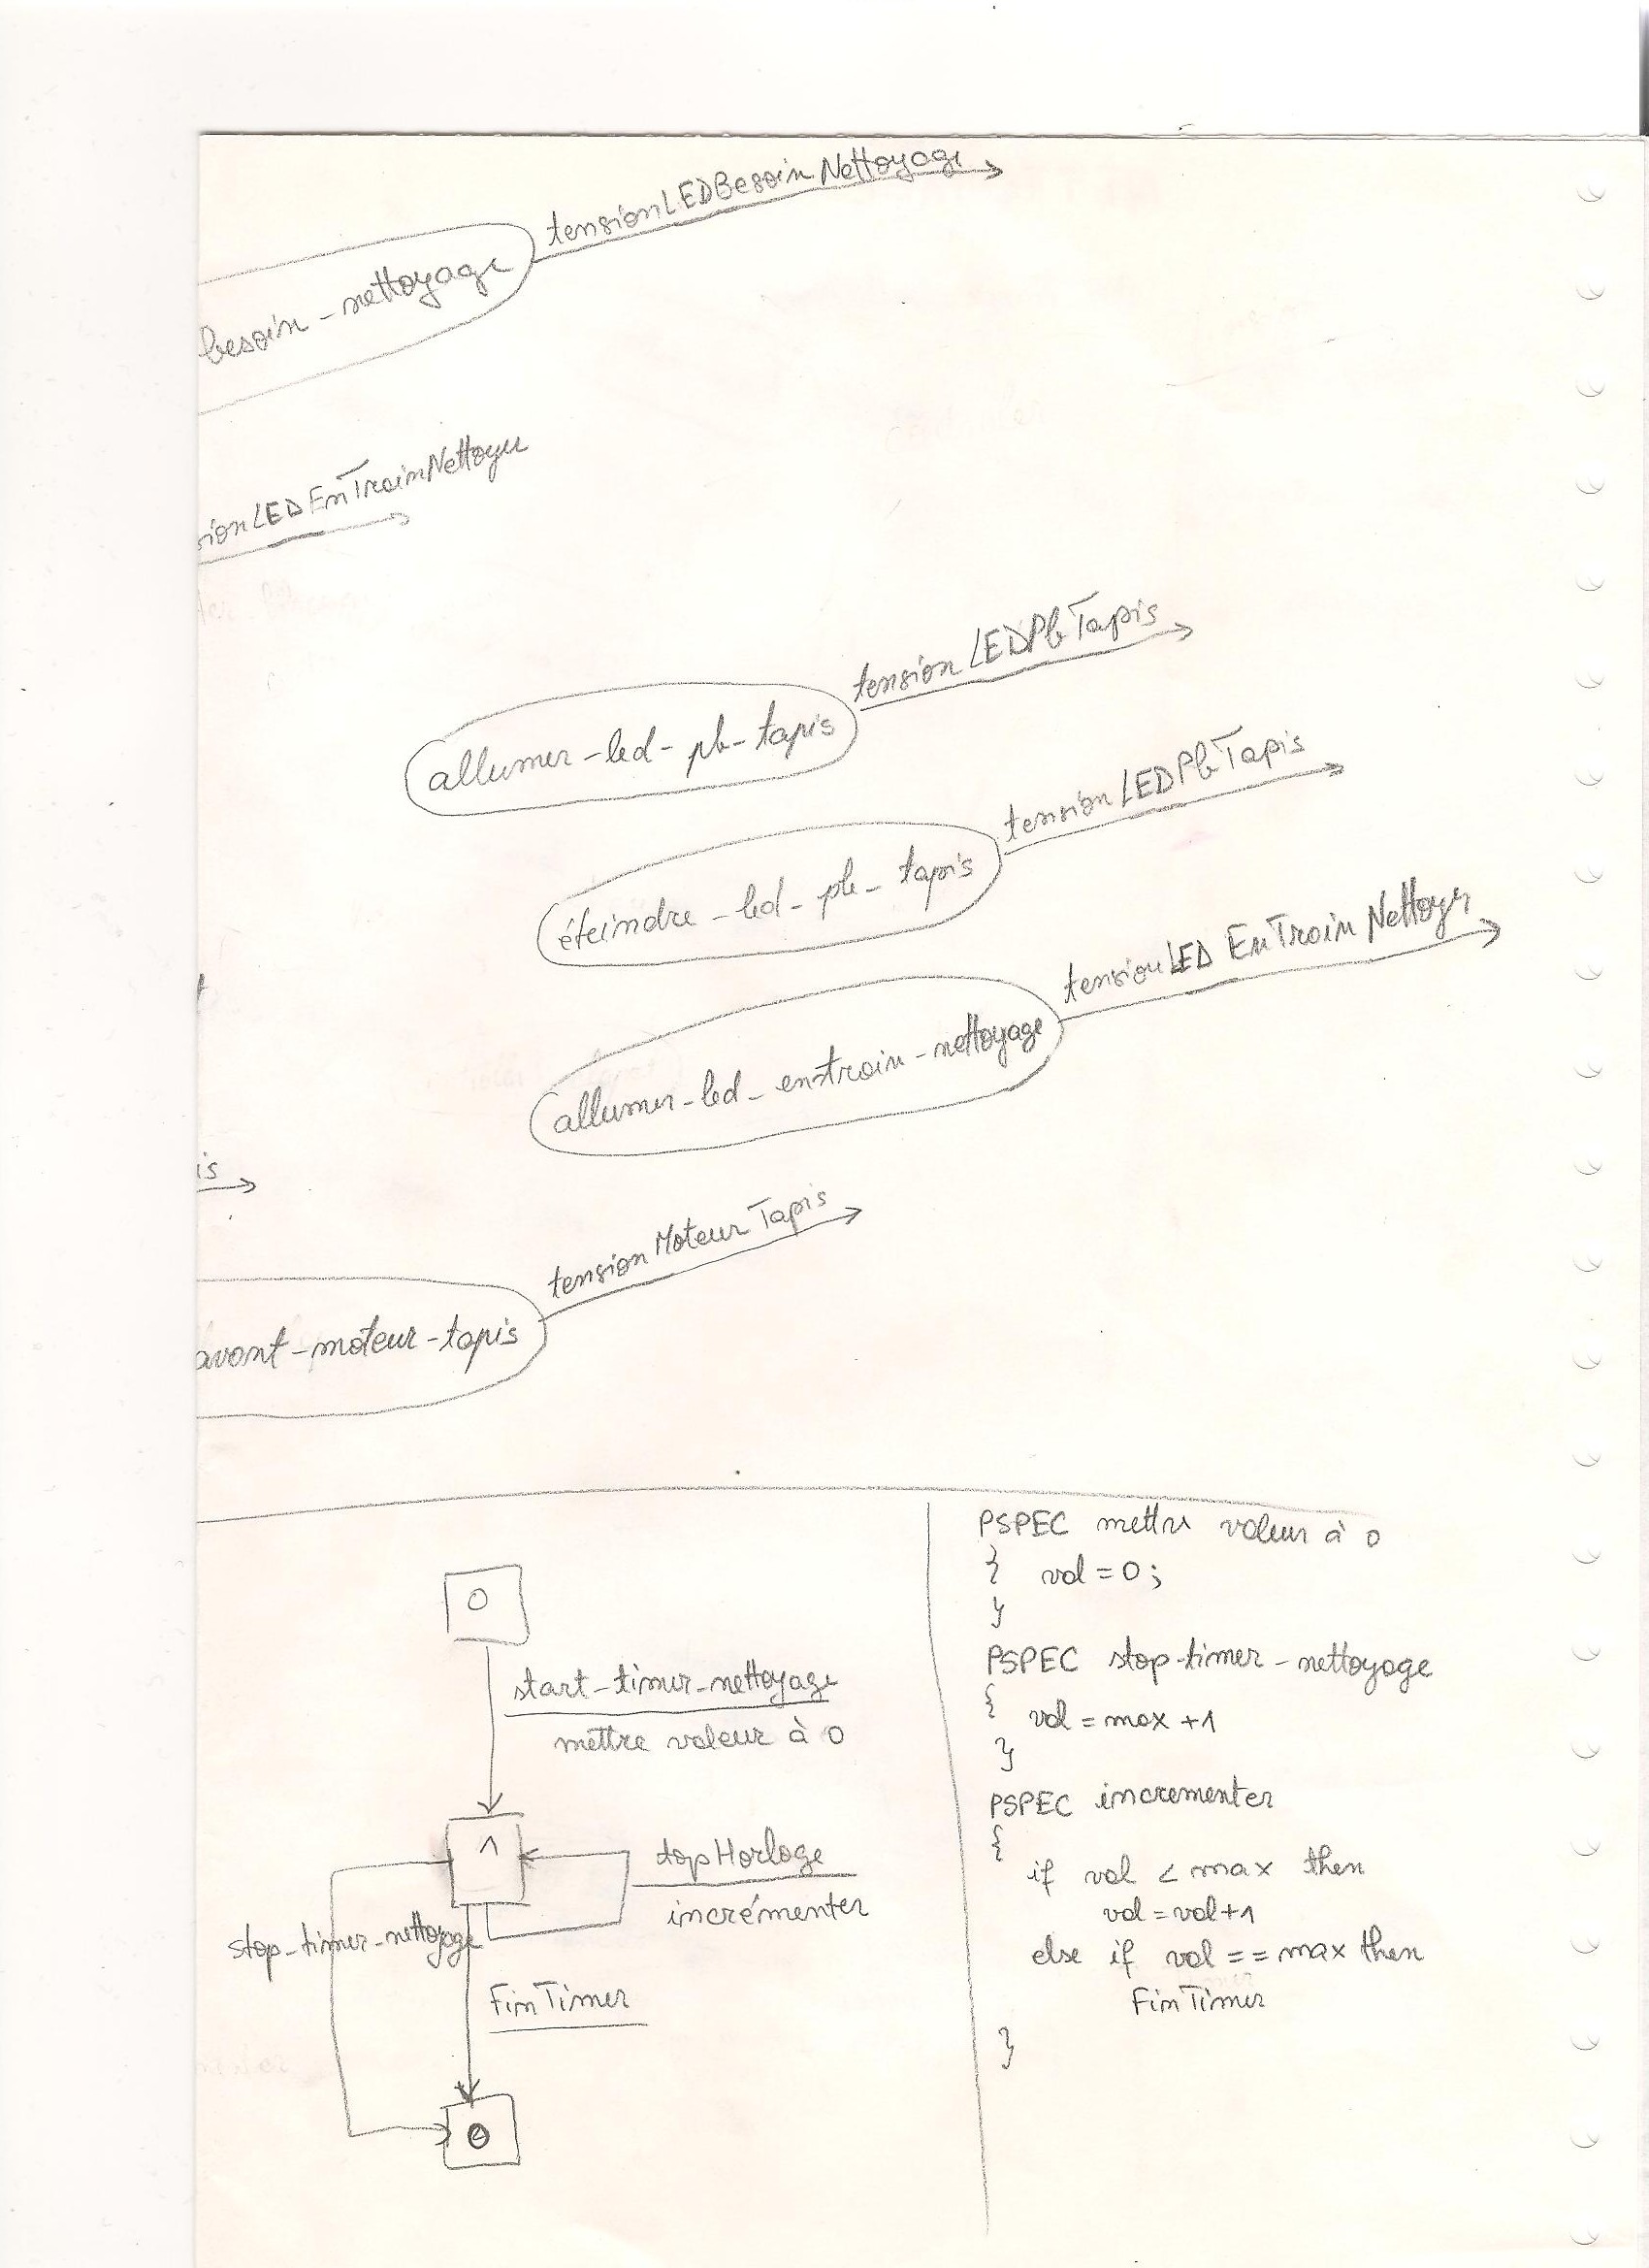 tensionLEDBesoinNettoyage
besoin-nettoyage
ionLEDEnTrainNettoyer
tensionLEDPbTapis
allumer-led-pb-tapis
tensionLEDPbTapis
éteindre-led-pb-tapis
tensionLED EnTrainNettoyer
allumer-led-en-train-nettoyage
is
tensionMoteurTapis
avant-moteur-tapis
0
start-timer-nettoyage
mettre valeur à 0
1
topHorloge
incrémenter
stop-timer-nettoyage
FinTimer
0
PSPEC mettre valeur à 0
{ val = 0;
}
PSPEC stop-timer-nettoyage
{ val = max +1
}
PSPEC incrementer
{
if val < max then
val = val+1
else if val == max then
FinTimer
}